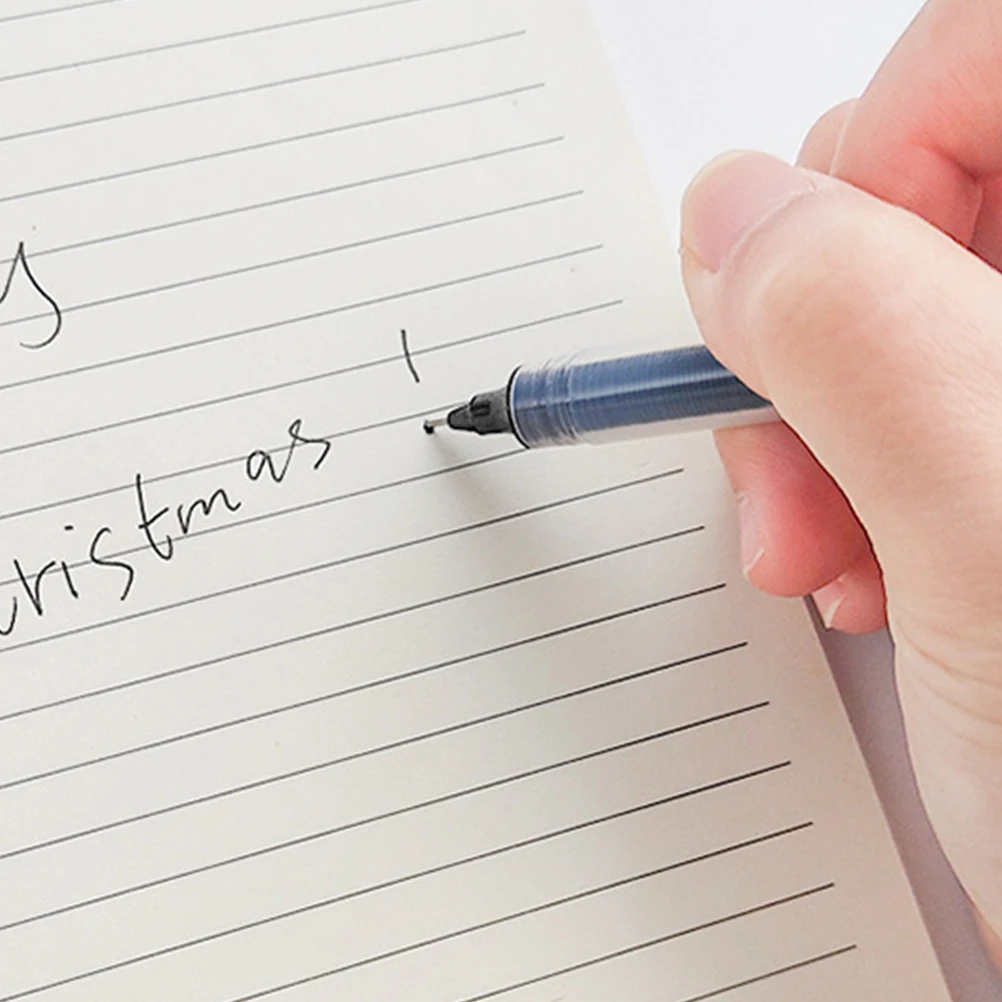 y
christmas !